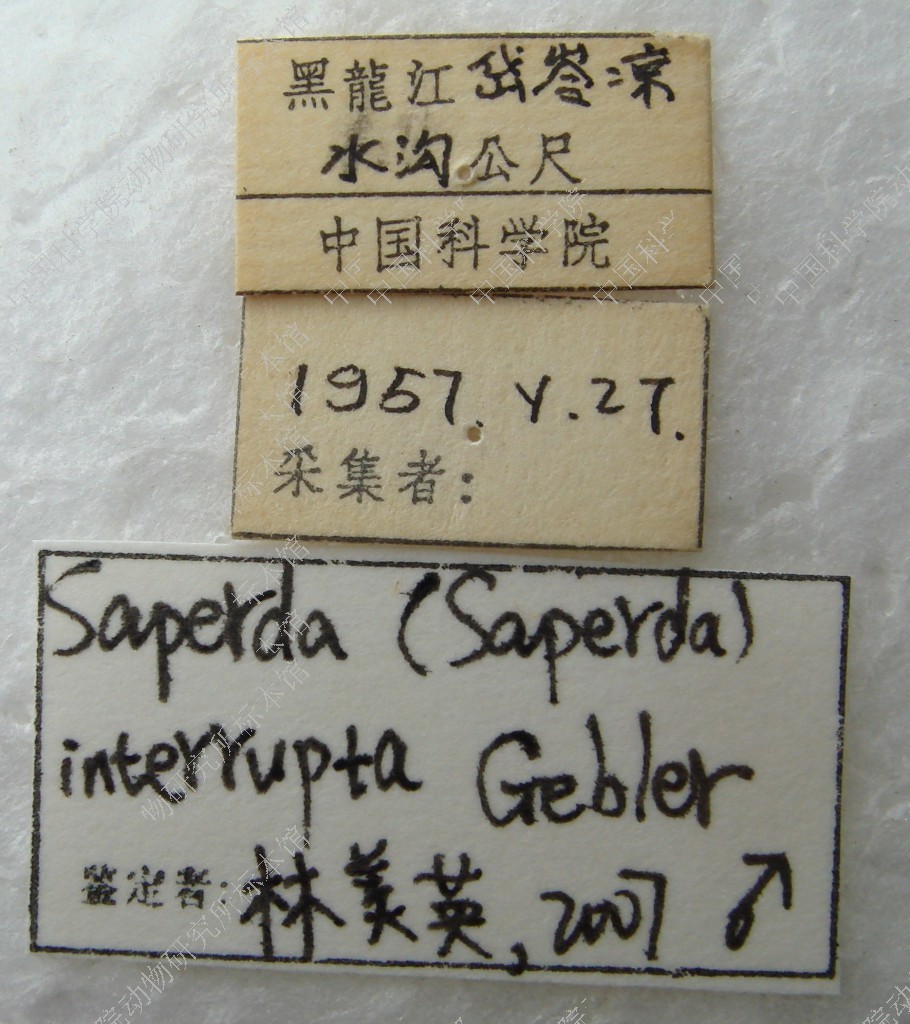 黑龍江岱岺凉
水沟 公尺
中国科学院
1957.V.27.
采集者:
Saperda (Saperda)
interrupta Gebler
鉴定者:林美英, 2007 ♂